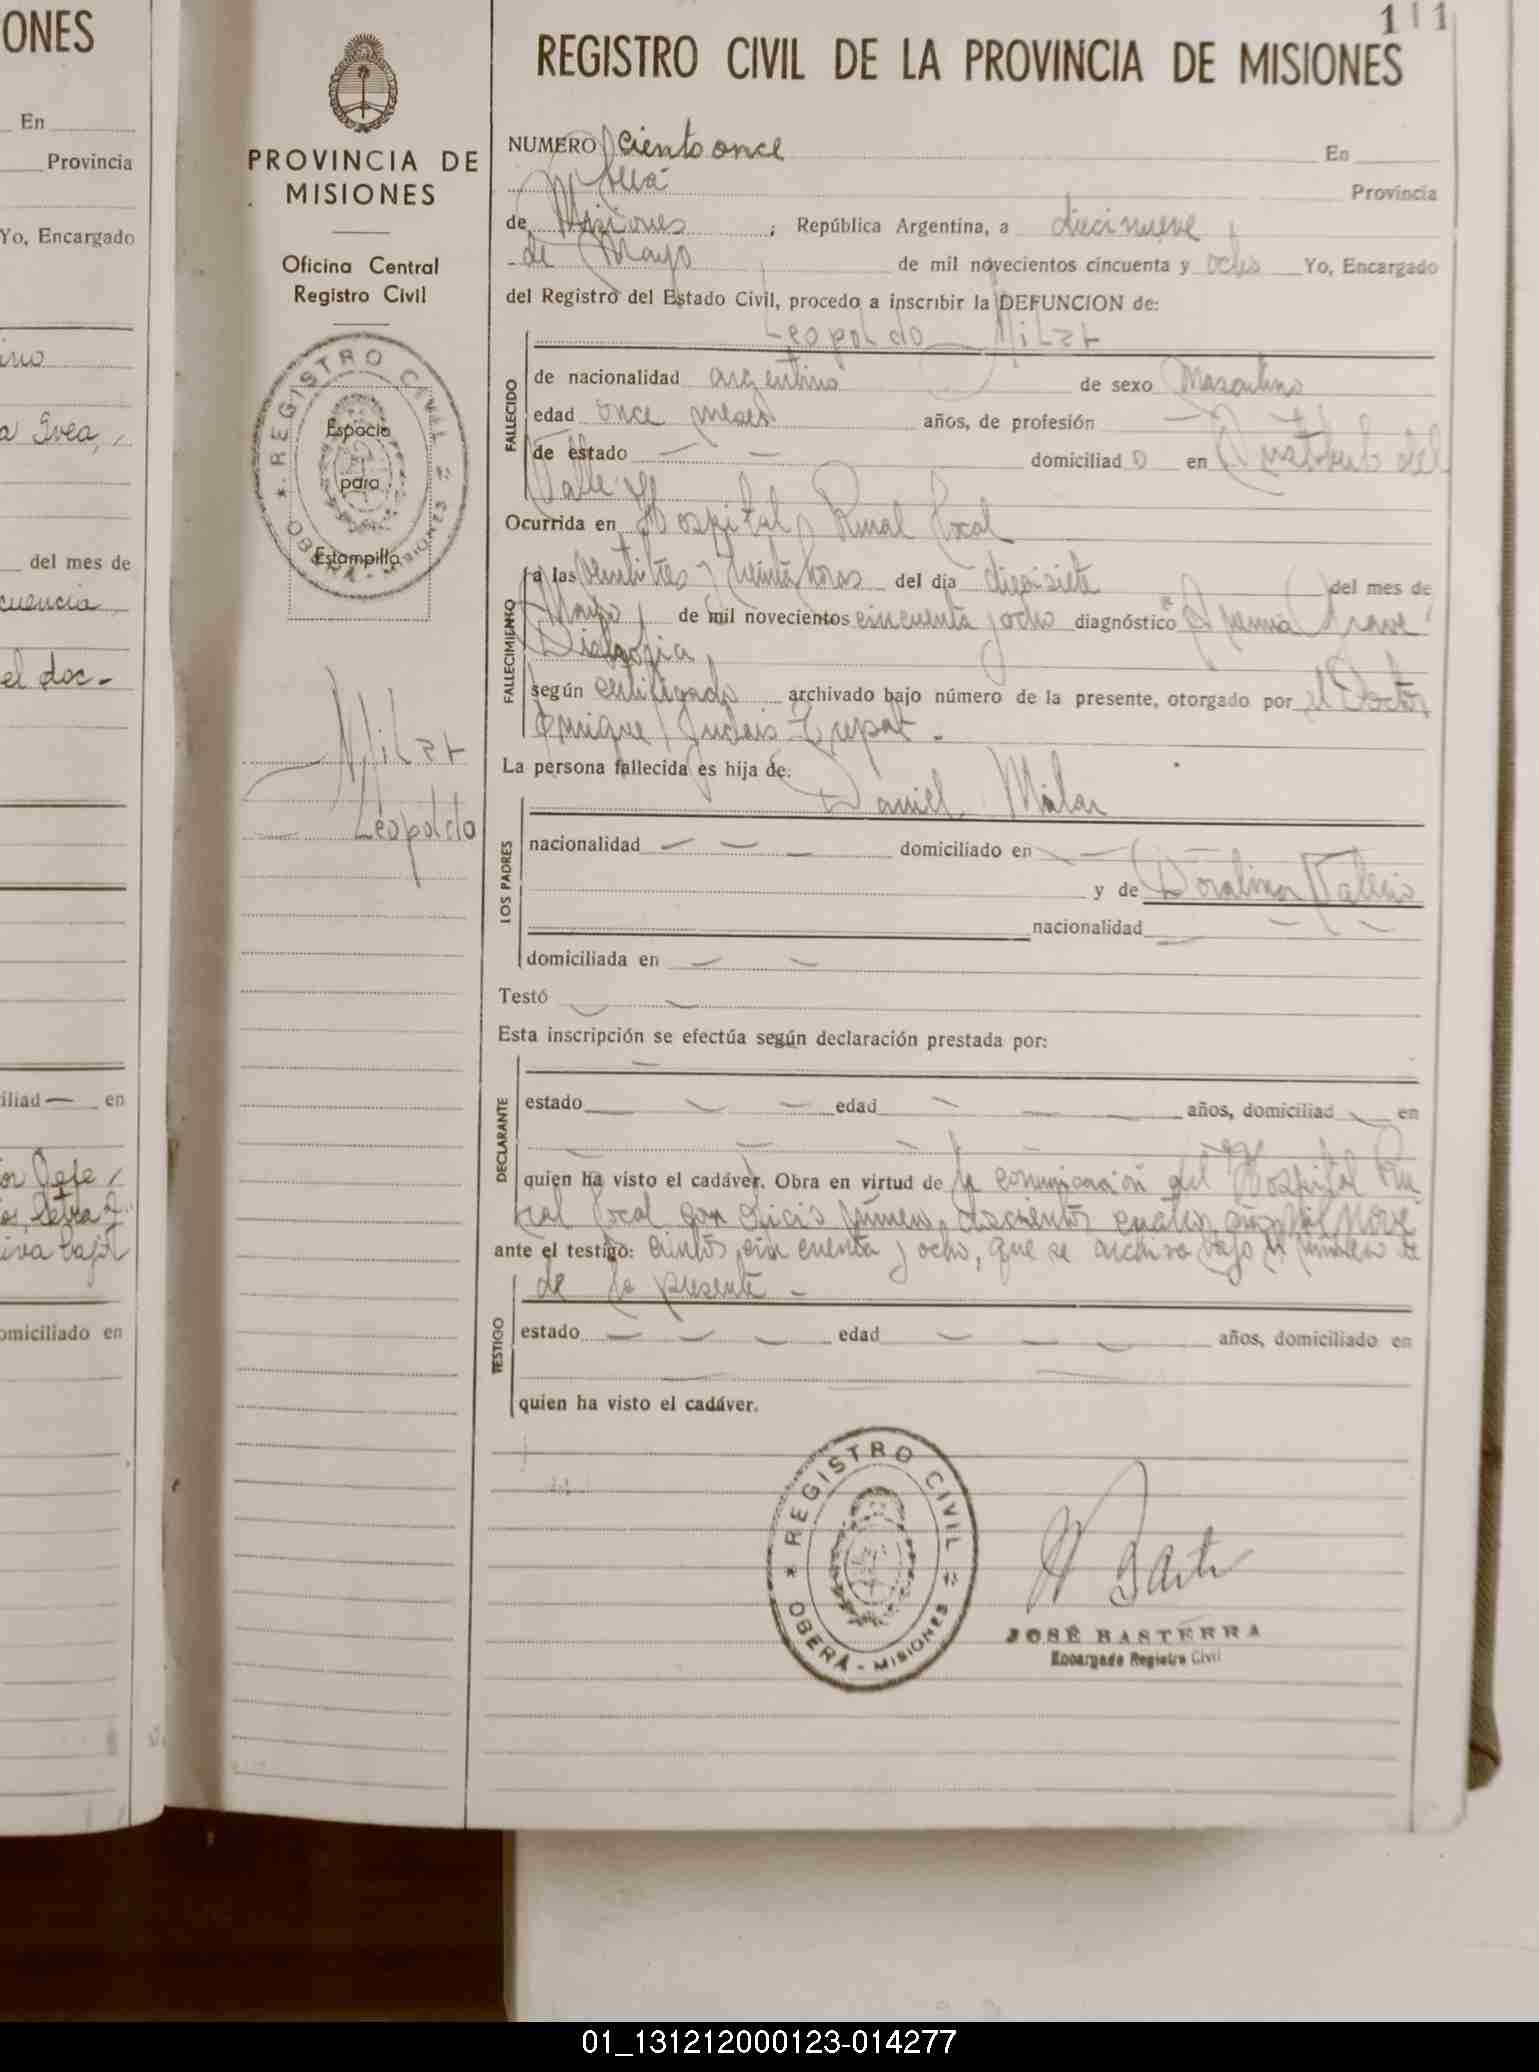 ONES
En
Provincia
Yo, Encargado
del mes de
el doc-
iliad — en
omiciliado en
PROVINCIA DE
MISIONES
Oficina Central
Registro Civil
REGISTRO CIVIL
OBERÁ - MISIONES
Espacio
para
Estampilla
Milar
Leopoldo
111
REGISTRO CIVIL DE LA PROVINCIA DE MISIONES
NUMERO Ciento once En
Provincia
de Misiones ; República Argentina, a diecinueve
de Mayo de mil novecientos cincuenta y ocho Yo, Encargado
del Registro del Estado Civil, procedo a inscribir la DEFUNCION de:
Leopoldo Milar
FALLECIDO
de nacionalidad argentino de sexo Masculino
edad once meses años, de profesión —
de estado — — domiciliado en
Valle
Ocurrida en Hospital Rural local
FALLECIMIENTO
a las veintitres y treinta horas del día diecisiete del mes de
Mayo de mil novecientos cincuenta y ocho diagnóstico
según certificado archivado bajo número de la presente, otorgado por el Doctor
Enrique
La persona fallecida es hija de:
Daniel Milar
LOS PADRES
nacionalidad — — — domiciliado en — —
y de Doralina
nacionalidad — —
domiciliada en — —
Testó — —
Esta inscripción se efectúa según declaración prestada por:
DECLARANTE
estado — — — edad — — — años, domiciliad — en
quien ha visto el cadáver. Obra en virtud de la comunicación del Hospital Ru-
ral local con oficio número doscientos cuatro año mil nove
ante el testigo: cientos cincuenta y ocho, que se archiva bajo el número
de la presente -
TESTIGO
estado — — — edad — — — años, domiciliado en
quien ha visto el cadáver.
REGISTRO CIVIL
OBERÁ - MISIONES
JOSÉ BASTERRA
Encargado Registro Civil
01_131212000123-014277